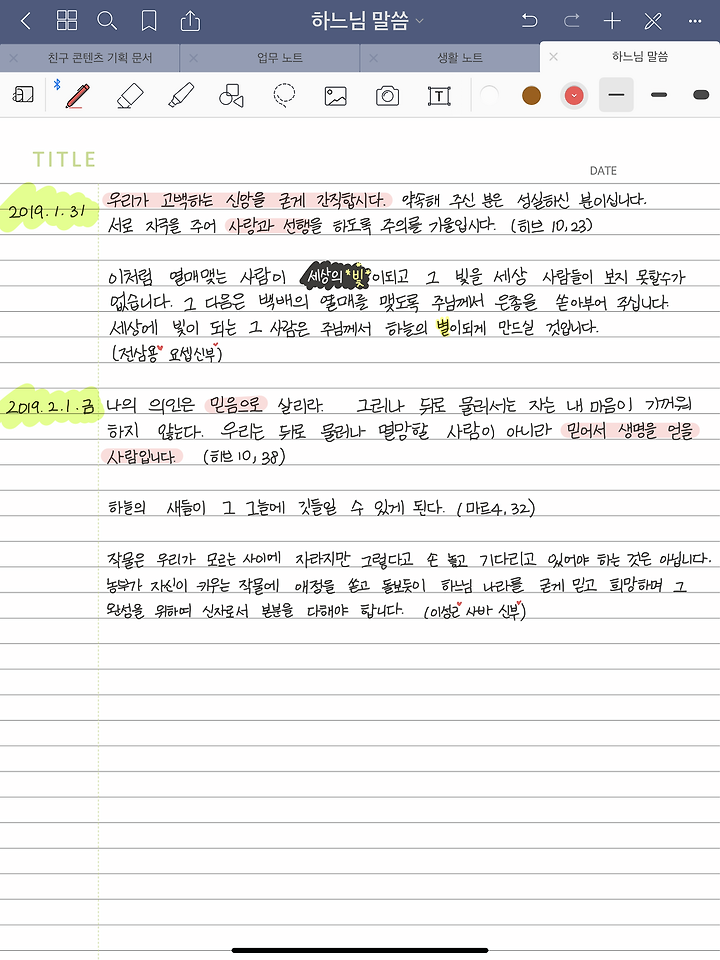 하느님 말씀
친구 콘텐츠 기획 문서
업무 노트
생활 노트
하느님 말씀
T
TITLE
DATE
2019. 1. 31
우리가 고백하는 신앙을 굳게 간직합시다. 약속해 주신 분은 성실하신 분이십니다.
서로 자극을 주어 사랑과 선행을 하도록 주의를 기울입시다. (히브 10,23)
이처럼 열매맺는 사람이 세상의 빛이되고 그 빛을 세상 사람들이 보지 못할수가
없습니다. 그 다음은 백배의 열매를 맺도록 주님께서 은총을 쏟아부어 주십니다.
세상에 빛이 되는 그 사람은 주님께서 하늘의 별이되게 만드실 것입니다.
(전삼용 요셉신부)
2019. 2. 1. 금
나의 의인은 믿음으로 살리라. 그러나 뒤로 물러서는 자는 내 마음이 기꺼워
하지 않는다. 우리는 뒤로 물러나 멸망할 사람이 아니라 믿어서 생명을 얻을
사람입니다. (히브10, 38)
하늘의 새들이 그 그늘에 깃들일 수 있게 된다. (마르4, 32)
작물은 우리가 모르는 사이에 자라지만 그렇다고 손 놓고 기다리고 있어야 하는 것은 아닙니다.
농부가 자신이 키우는 작물에 애정을 쏟고 돌보듯이 하느님 나라를 굳게 믿고 희망하며 그
완성을 위하여 신자로서 본분을 다해야 합니다. (이성근 사바 신부)